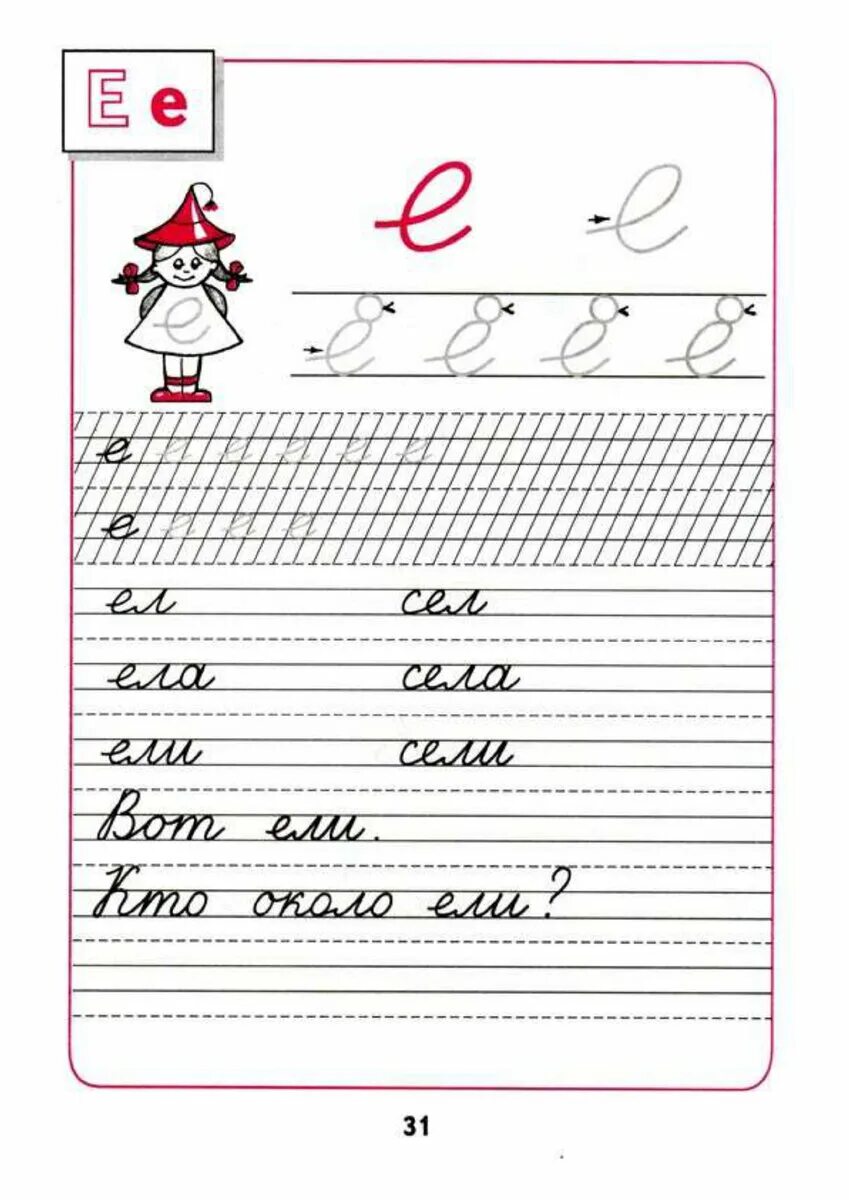 Е е
е е
е
е е е е
е е е е е е
е е е е
ел сел
ела села
ели сели
Вот ели.
Кто около ели?
31